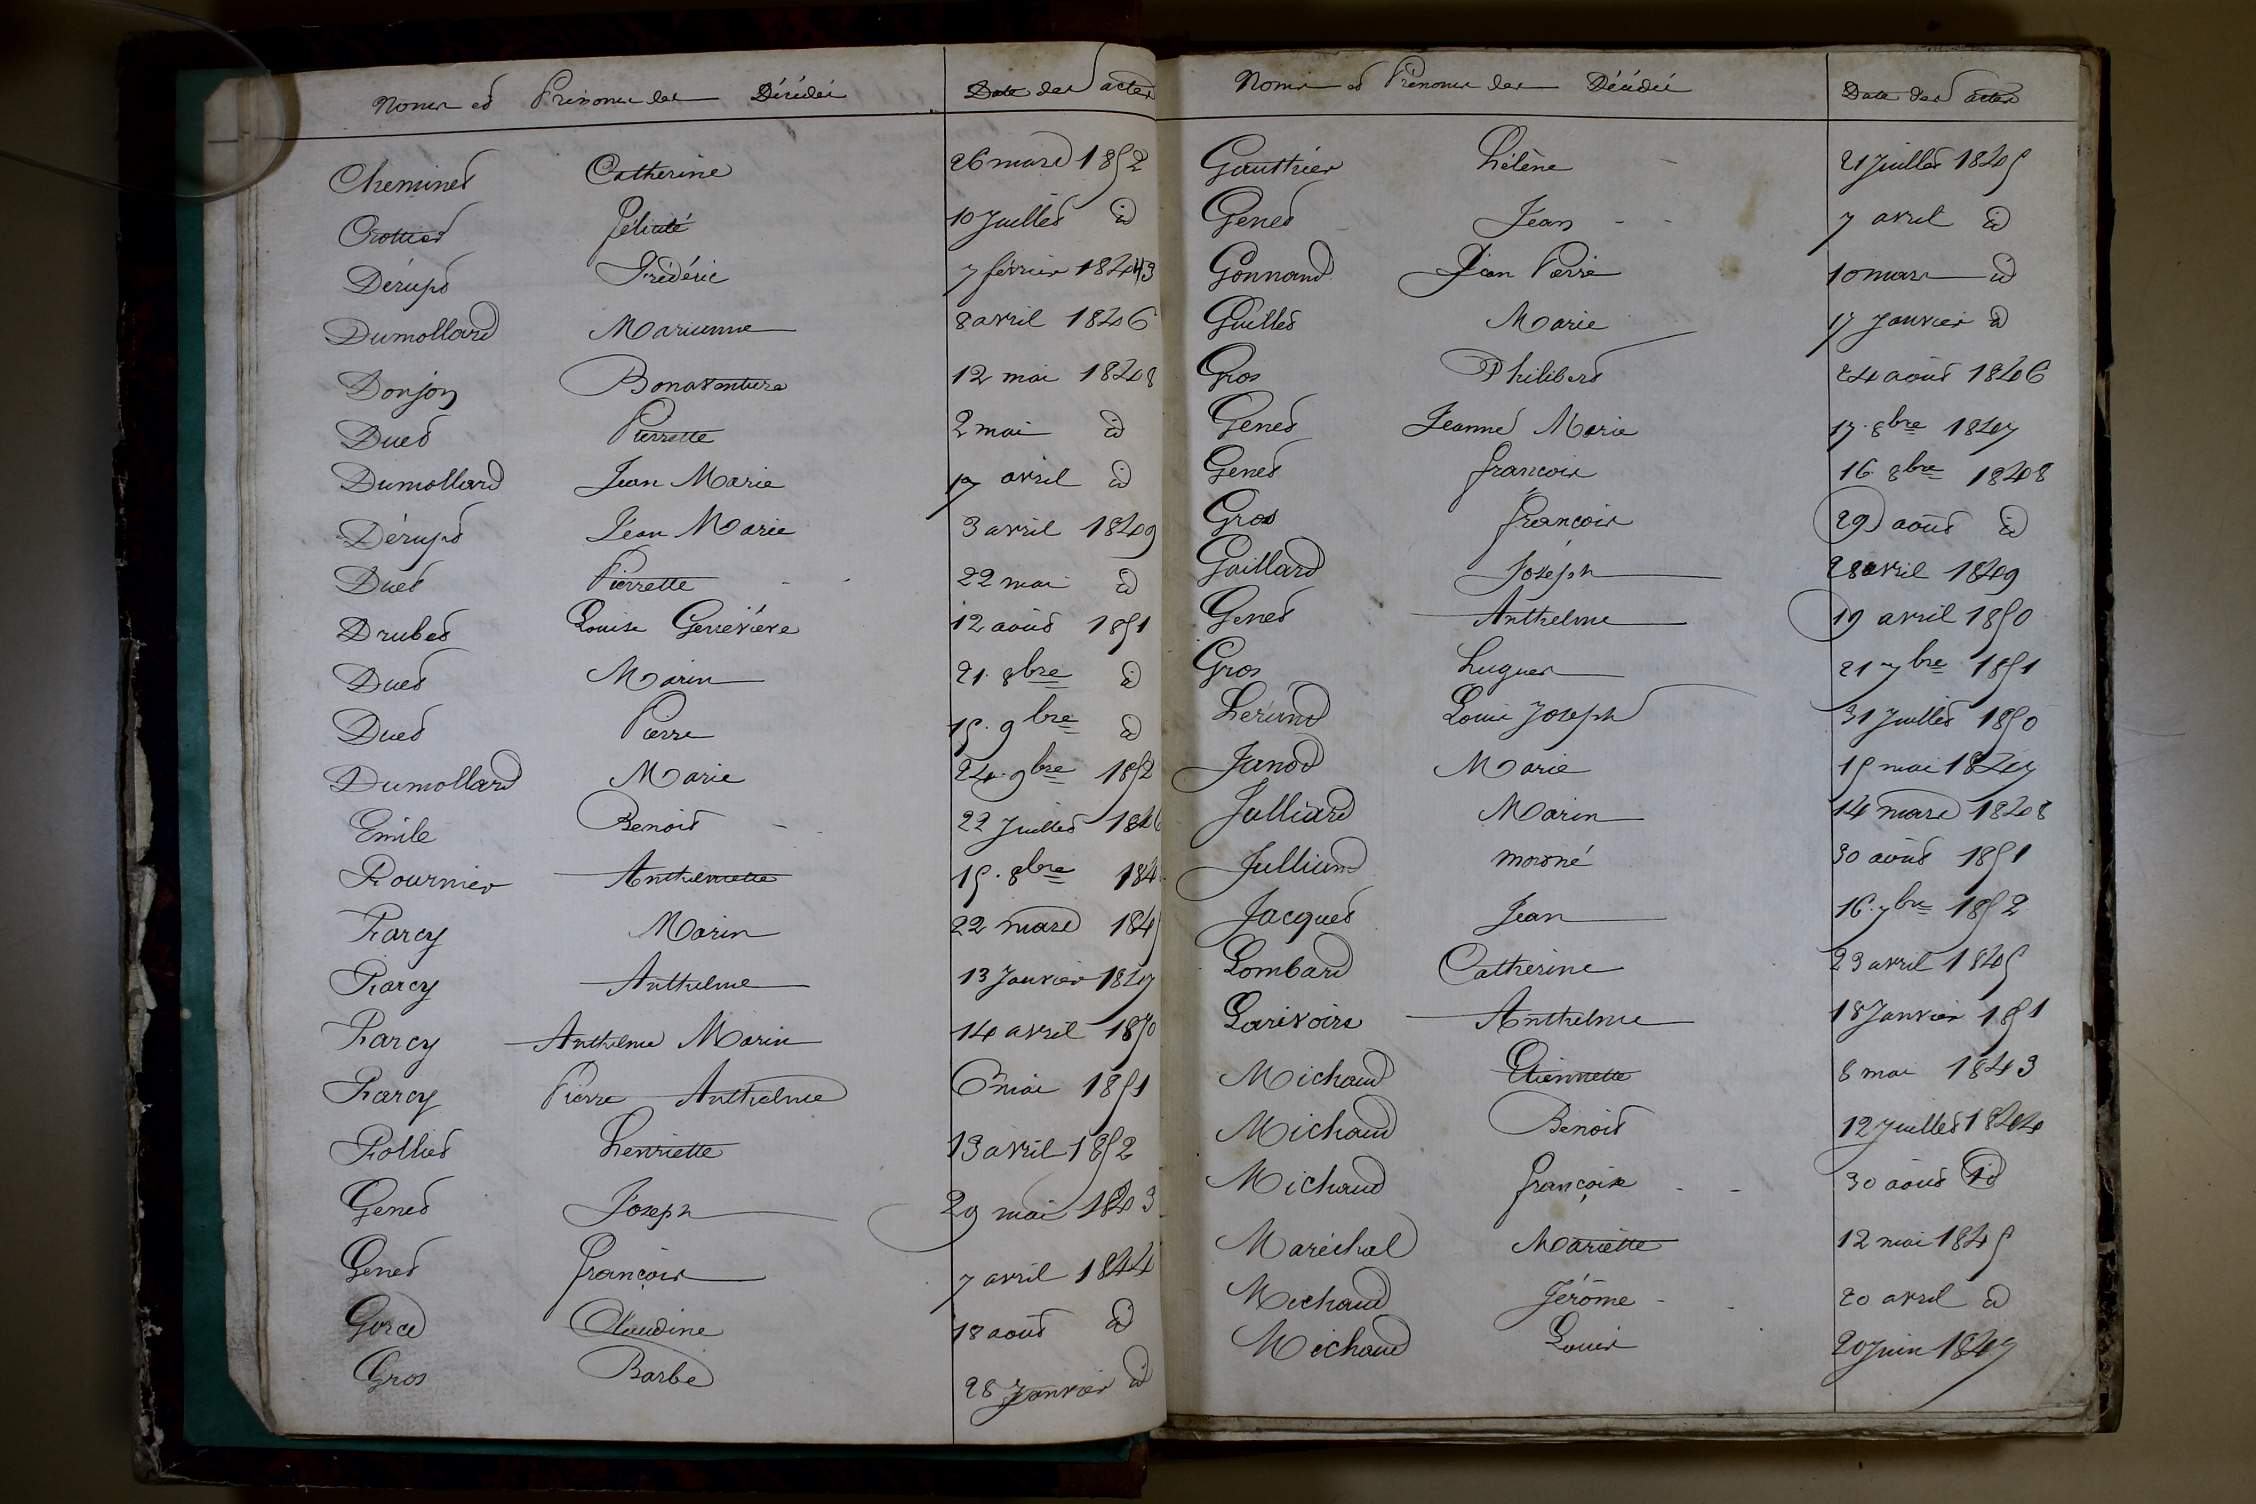 Noms et Prénoms des Décédés Date des actes
Cheminet Catherine 26 mars 1852
Crottier Félicité 10 Juillet id
Dérupt Frédéric 7 février 1843
Dumollard Marianne 8 avril 1846
Donjon Bonaventure 12 mai 1848
Duet Pierrette 2 mai id
Dumollard Jean Marie 17 avril id
Dérupt Jean Marie 3 avril 1849
Duet Pierrette 22 mai id
Drubet Louise Geneviève 12 août 1851
Duet Marin 21. 8bre id
Duet Pierre 15. 9bre id
Dumollard Marie 24. 9bre 1852
Emile Benoit 22 Juillet 1846
Fournier Anthelmette 15. 8bre 184
Farcy Marin 22 mars 184
Farcy Anthelme 13 Janvier 1849
Farcy Anthelme Marin 14 avril 1850
Farcy Pierre Anthelme 6 mai 1851
Folliet henriette 13 avril 1852
Genet Joseph 29 mai 1843
Genet françois 7 avril 1844
Claudine 18 août id
Gros Barbe 28 Janvier id
Noms et Prénoms des Décédés Date des actes
Gauthier hélène 21 Juillet 1845
Genet Jean 7 avril id
Gonnand Jean Pierre 10 mars id
Guillet Marie 17 Janvier id
Gros Philibert 24 août 1846
Genet Jeanne Marie 17. 8bre 1847
Genet françois 16. 8bre 1848
Gros françois 29 août id
Gaillard Joseph 28 avril 1849
Genet Anthelme 19 avril 1850
Gros hugues 21 7bre 1851
Louis Joseph 31 Juillet 1850
Janod Marie 15 mai 1847
Julliard Marin 14 mars 1848
Julliand mort né 30 août 1851
Jacquet Jean 16. 7bre 1852
Lombard Catherine 23 avril 1845
Larivoire Anthelme 18 Janvier 1851
Michaud Etiennette 8 mai 1843
Michaud Benoit 12 juillet 1844
Michaud françoise 30 août id
Maréchal Mariette 12 mai 1845
Michaud Jérôme 20 avril id
Michaud Louis 20 juin 1849